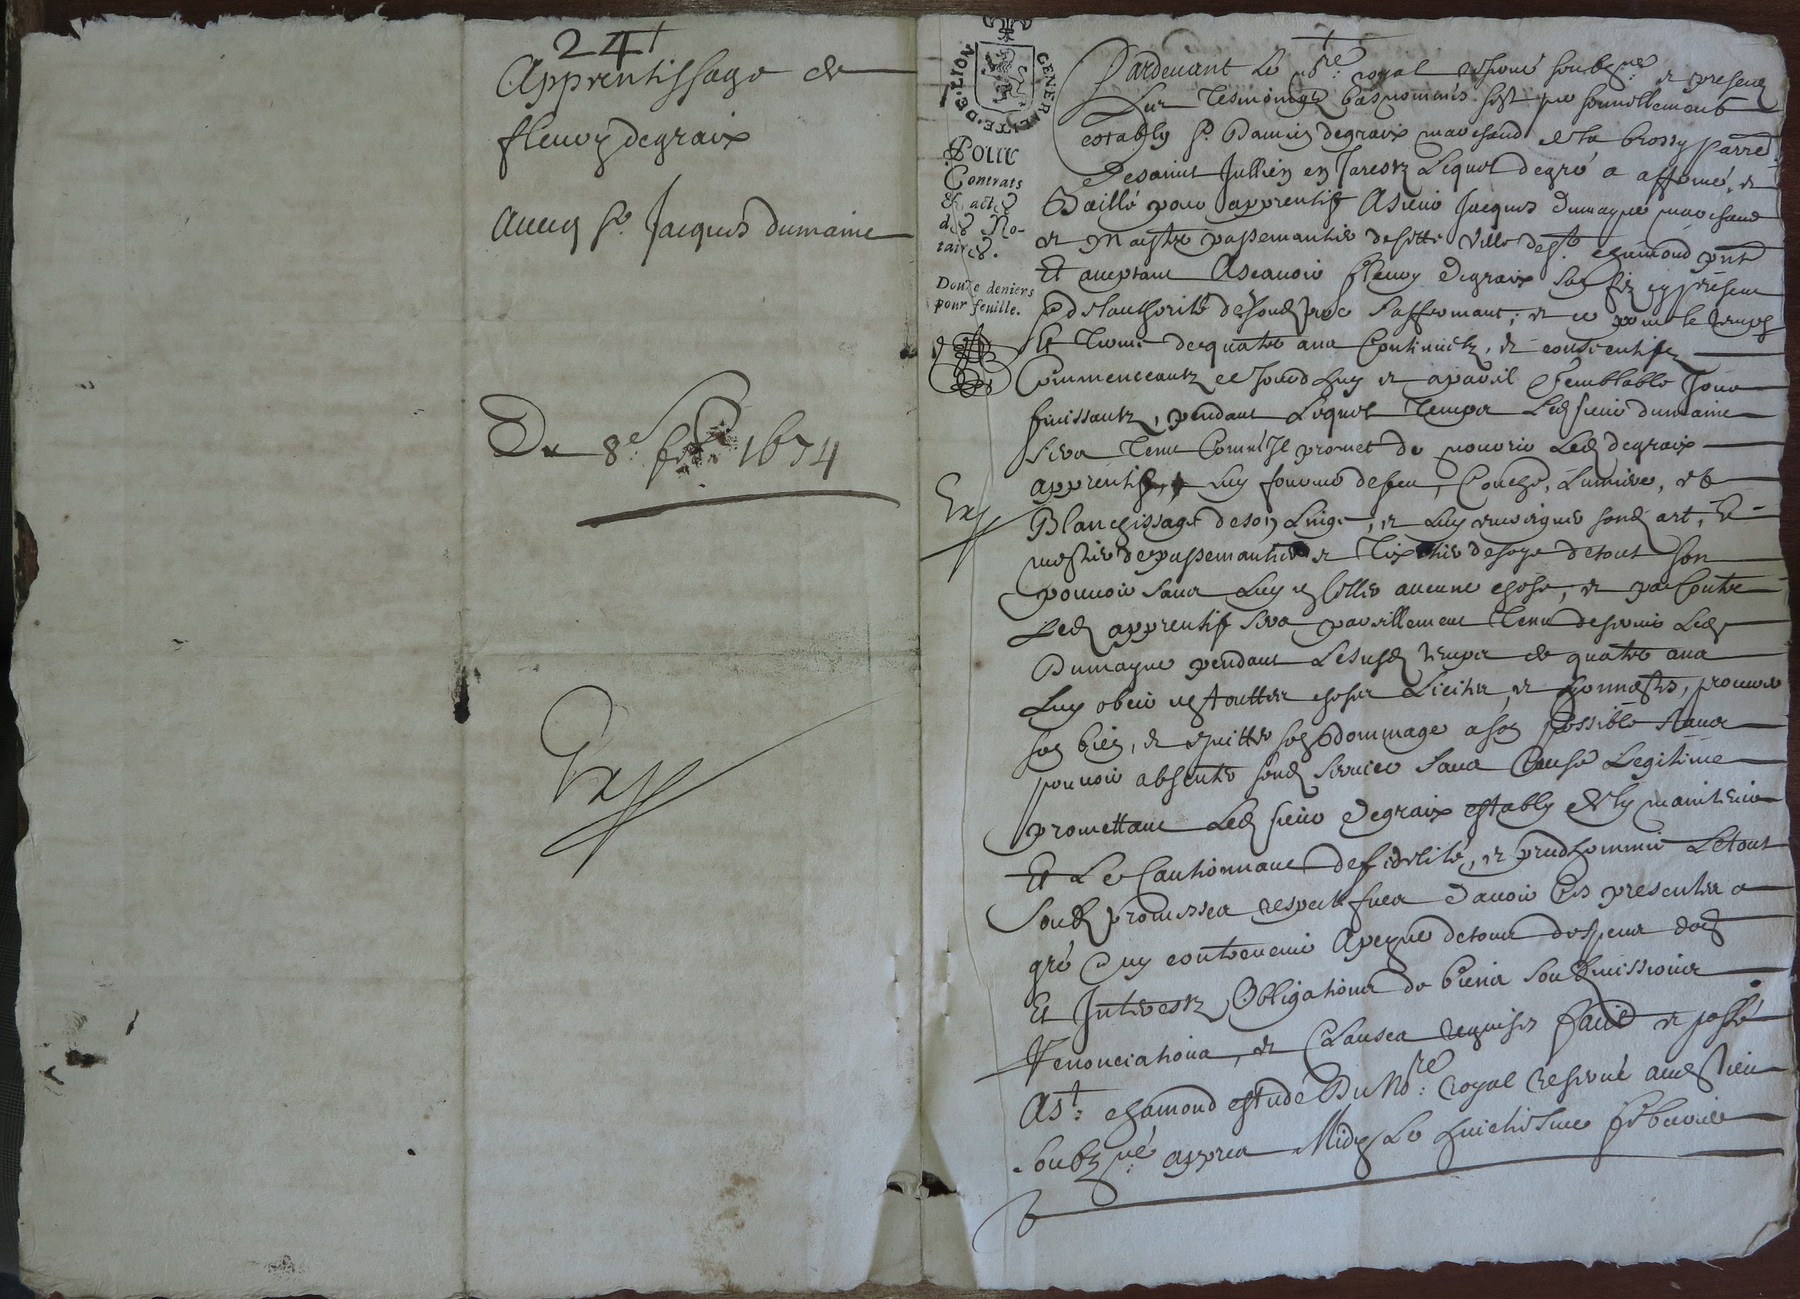 24
Apprentissage de
fleury degraix
Avecq Sr. Jacques dumaine
Du 8e. 1674
Exp
GENERALITE · DE · LION
Pour
Contrats
& actes
des No-
taires.
Douze deniers
pour feuille.
Exp
Pardevant Le nre. royal reservé soubzné. et presens
Les Tesmoings bas nommés s'est personnellement
estably Sr. Damien degraix marchand de la brossy parre.
de saint Jullien en Jarestz Lequel de gré a affermé, et
Baillé pour apprentif A sieur Jacques dumayne marchand
et Maistre passemantier de cette Ville de St. chamond pnt
Et acceptant Ascavoir fleury degraix son filz icy present
de l'authorité de sond pere s'affermant; et ce pour le temps
Et Terme de quatre ans Continuelz, et consecutifz
Commenceantz ce jourd'huy et a pareil et semblable jour
finissantz, pendant Lequel Temps Led sieur dumaine
sera tenu Comme Il promet de nourrir Led degraix
apprentif, Luy fournir de feu, Couche, Lumiere, et
Blanchissage de son Linge, et Luy enseigner sond art, Et
mestier de passemantier et Tixotier de soye de tout son
pouvoir sans Luy en celler aucune chose, et par Contre
Led apprentif sera pareillement Tenu de servir Led
Dumayne pendant Le susd temps de quatre ans
Luy obeir en touttes choses Licites, et honnestes, procurer
son bien, et eviter son dommage a son possible sans
pouvoir absenter sond service sans Cause Legitime
promettant Led sieur degraix estably de l'y maintenir
Et Le Cautionnant de fidelité, et prudhommie Le tout
soubz promesses respectives d'avoir Ces presentes a
gré n'y contrevenir A peyne de tous despens dom
Et Interestz Obligations de biens soubmissions
Renonciations, et Clauses requises faict et passé
A St: chamond estude Du Nore: royal reservé
soubzné: apres Midy Le huictiesme febvrier